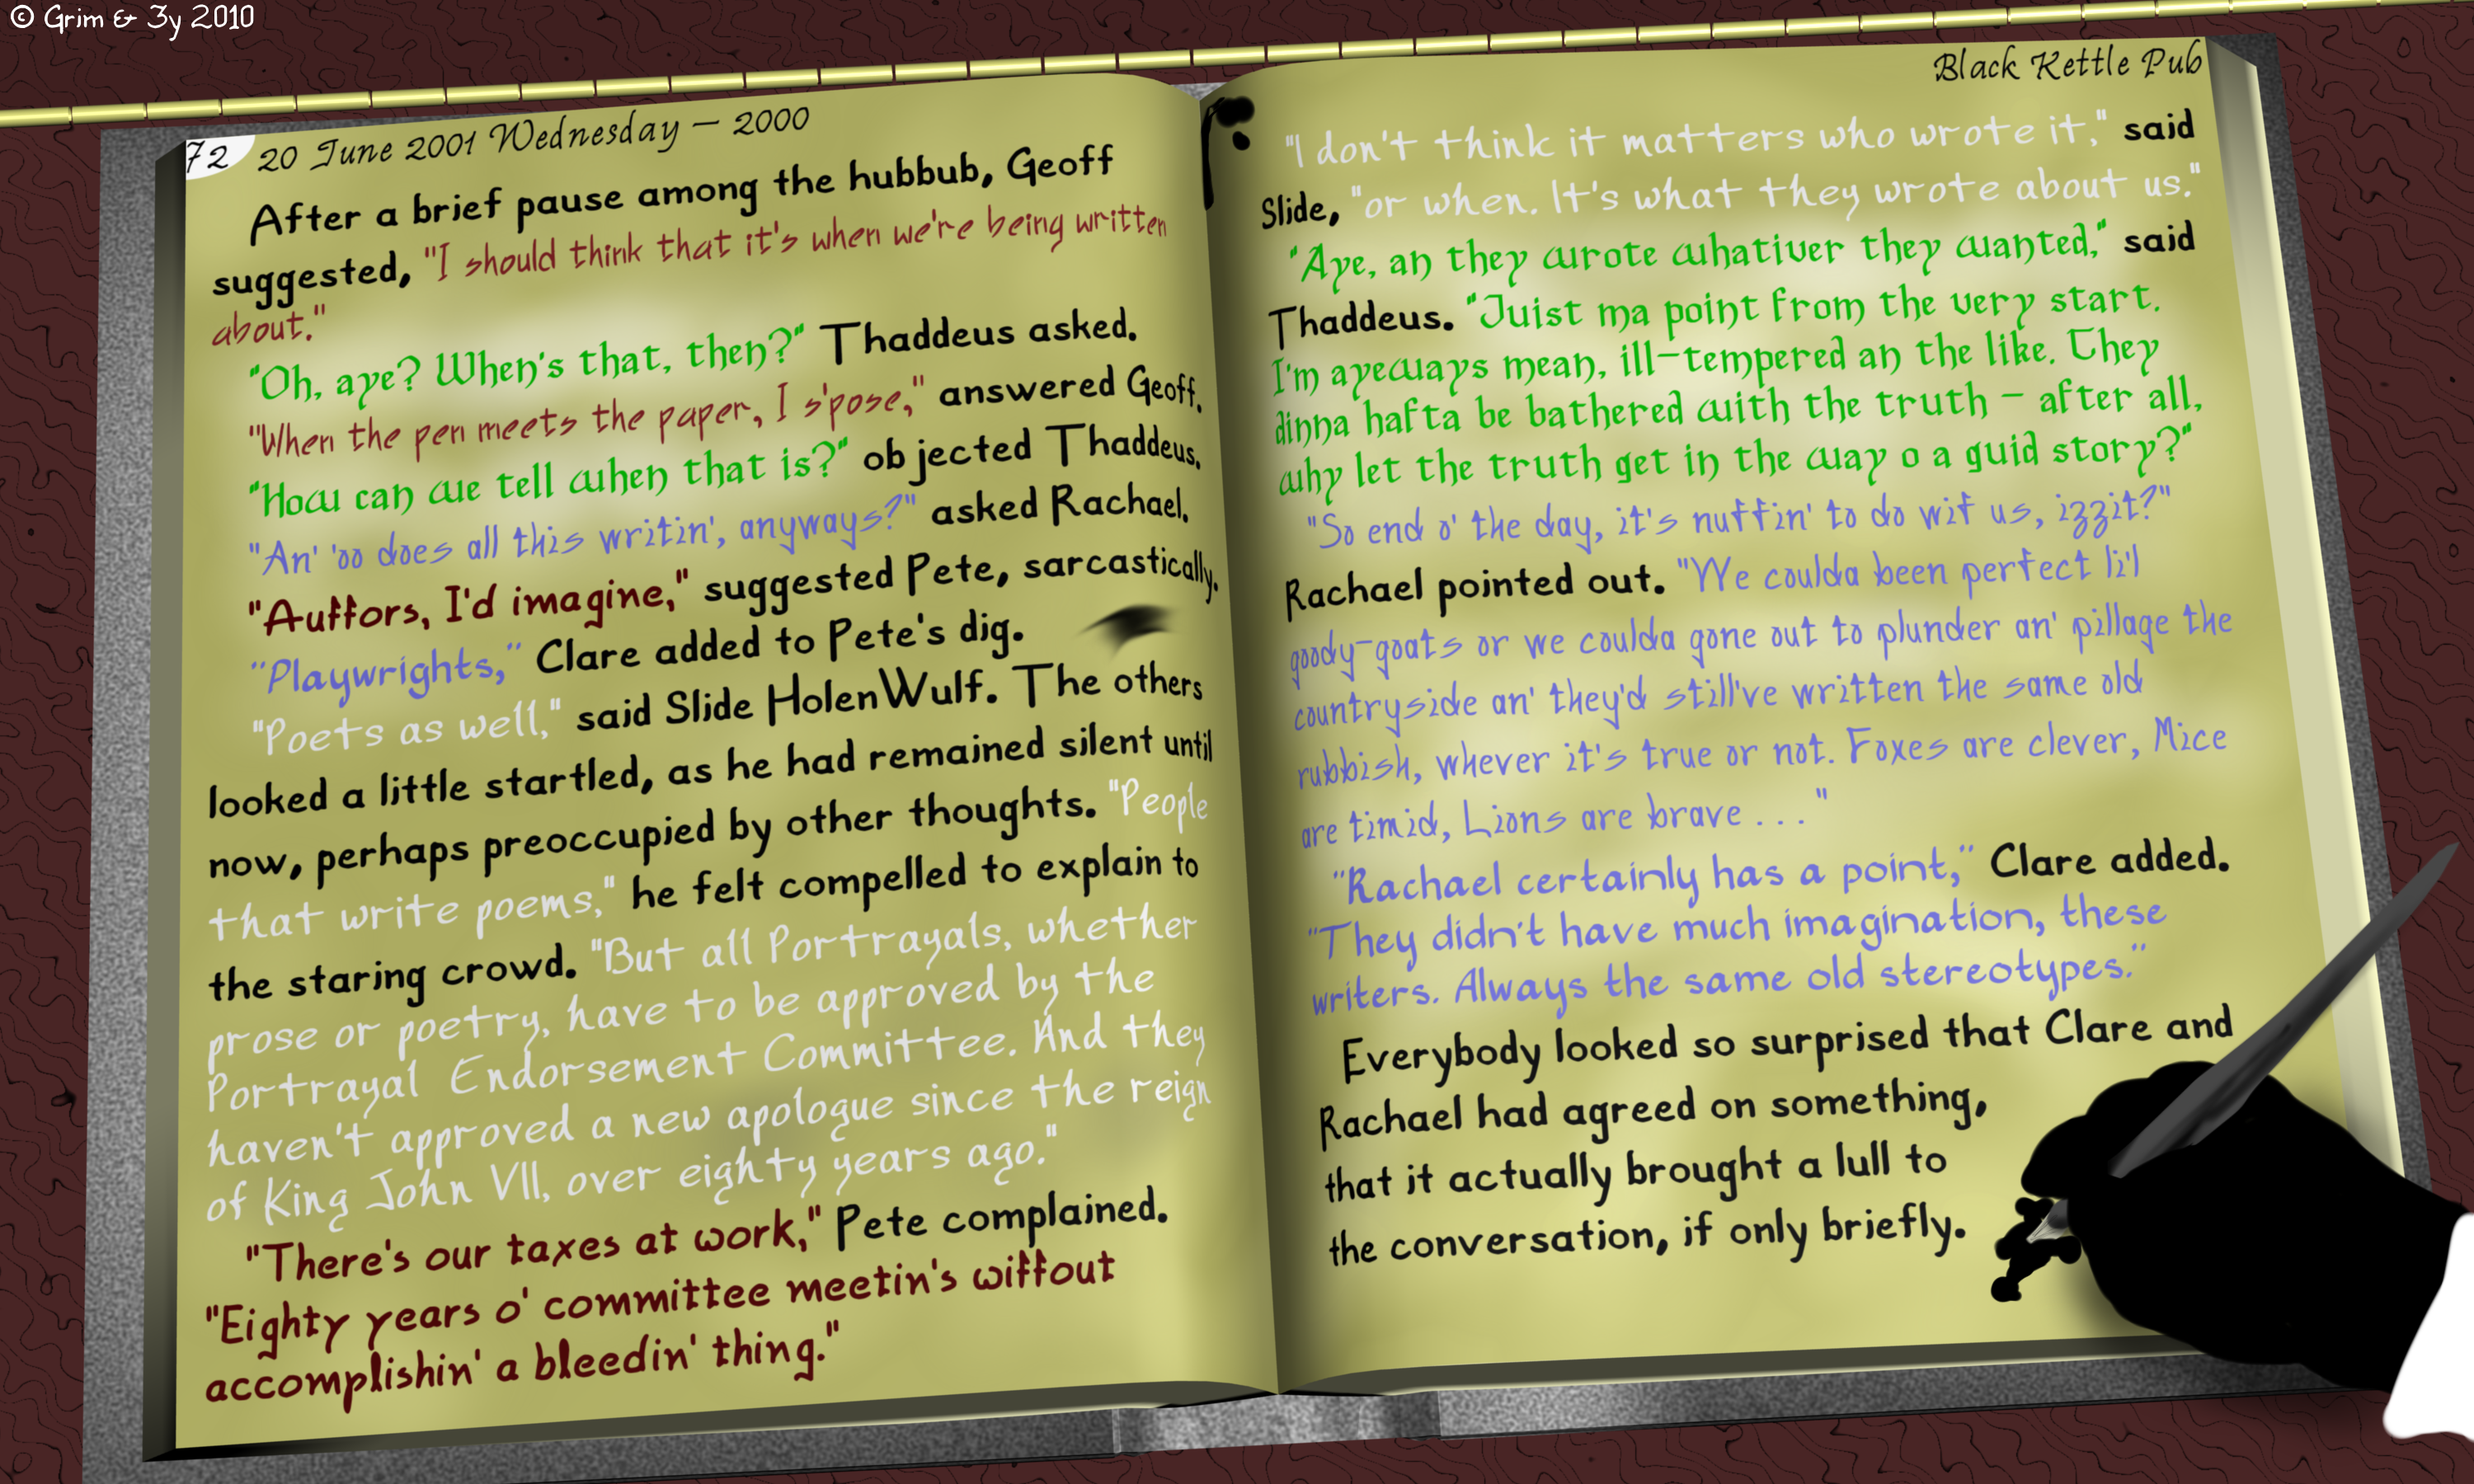 © Grim & 3y 2010
72 20 June 2001 Wednesday – 2000
After a brief pause among the hubbub, Geoff
suggested, "I should think that it's when we're being written
about."
"Oh, aye? When's that, then?" Thaddeus asked.
"When the pen meets the paper, I s'pose," answered Geoff.
"How can we tell when that is?" objected Thaddeus.
"An' 'oo does all this writin', anyways?" asked Rachael.
"Auffors, I'd imagine," suggested Pete, sarcastically.
"Playwrights," Clare added to Pete's dig.
"Poets as well," said Slide HolenWulf. The others
looked a little startled, as he had remained silent until
now, perhaps preoccupied by other thoughts. "People
that write poems," he felt compelled to explain to
the staring crowd. "But all Portrayals, whether
prose or poetry, have to be approved by the
Portrayal Endorsement Committee. And they
haven't approved a new apologue since the reign
of King John VII, over eighty years ago."
"There's our taxes at work," Pete complained.
"Eighty years o' committee meetin's wiffout
accomplishin' a bleedin' thing."
Black Kettle Pub
"I don't think it matters who wrote it," said
Slide, "or when. It's what they wrote about us."
"Aye, an they wrote whativer they wanted," said
Thaddeus. "Juist ma point from the very start.
I'm ayeways mean, ill-tempered an the like. They
dinna hafta be bathered with the truth – after all,
why let the truth get in the way o a guid story?"
"So end o' the day, it's nuffin' to do wif us, izzit?"
Rachael pointed out. "We coulda been perfect li'l
goody-goats or we coulda gone out to plunder an' pillage the
countryside an' they'd still've written the same old
rubbish, whever it's true or not. Foxes are clever, Mice
are timid, Lions are brave . . ."
"Rachael certainly has a point," Clare added.
"They didn't have much imagination, these
writers. Always the same old stereotypes."
Everybody looked so surprised that Clare and
Rachael had agreed on something,
that it actually brought a lull to
the conversation, if only briefly.